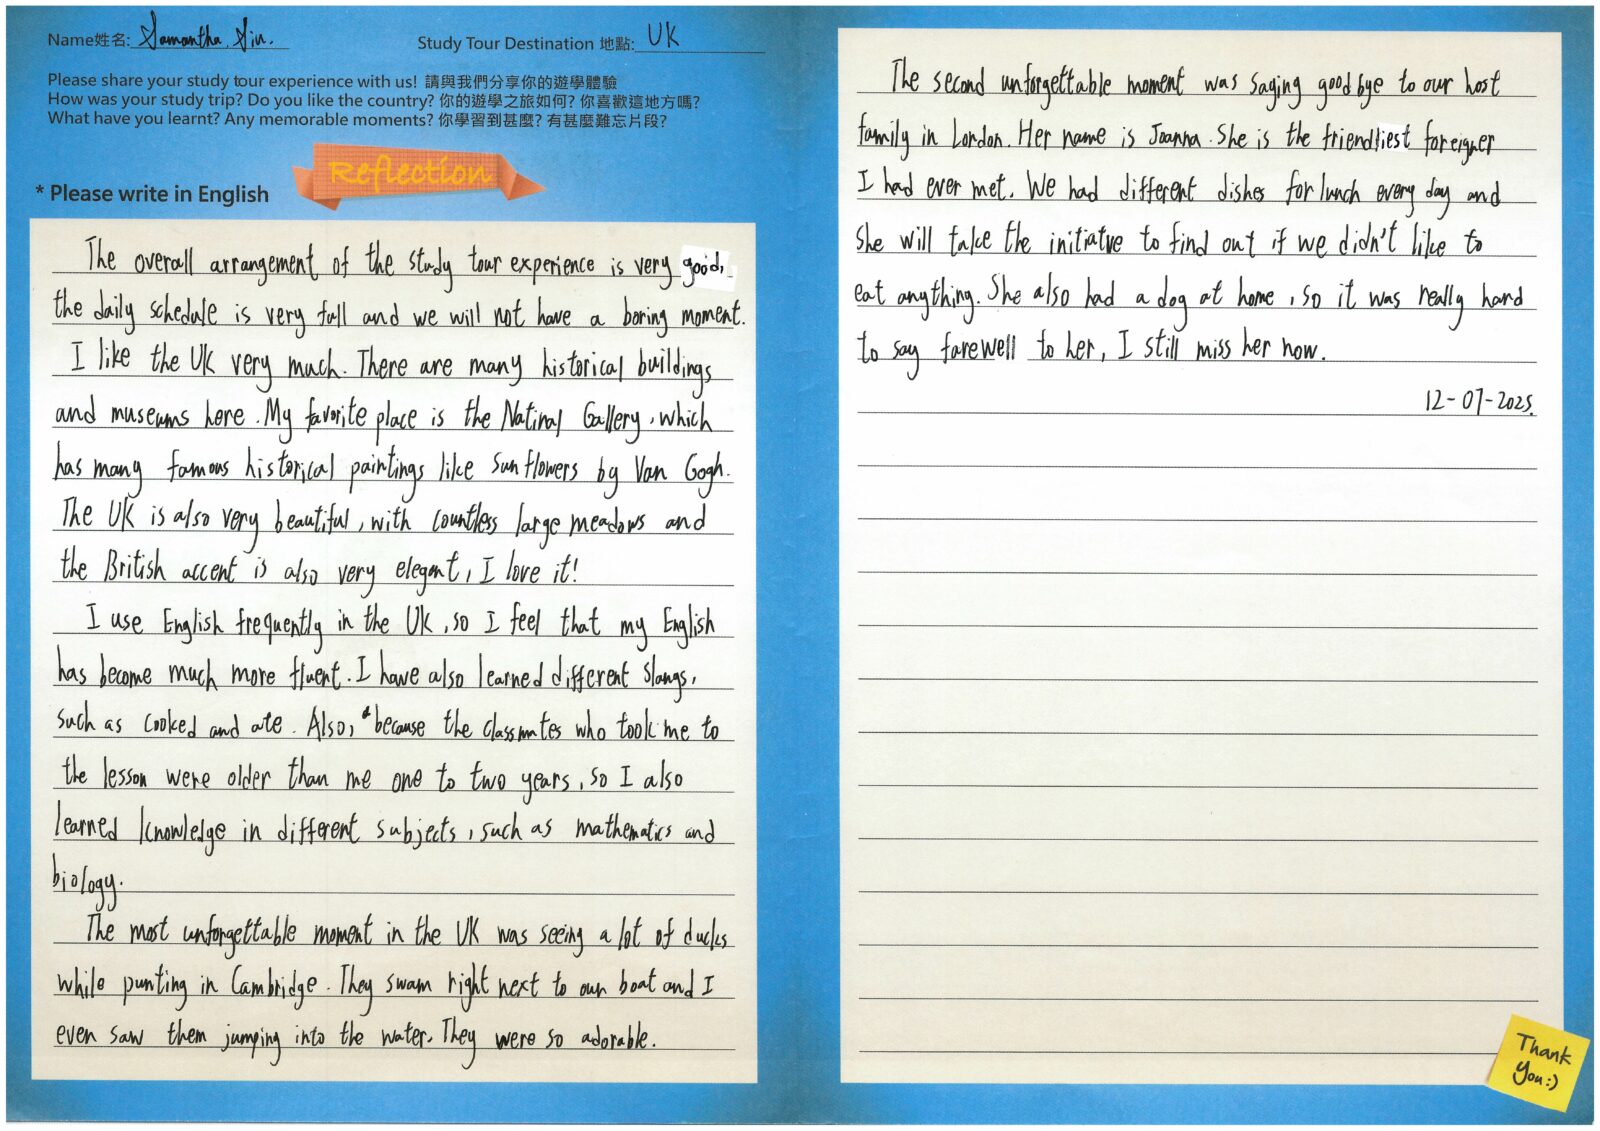 Name姓名: Samantha, Siu.
Study Tour Destination 地點: UK
Please share your study tour experience with us! 請與我們分享你的遊學體驗
How was your study trip? Do you like the country? 你的遊學之旅如何? 你喜歡這地方嗎?
What have you learnt? Any memorable moments? 你學習到甚麼? 有甚麼難忘片段?
Reflection
* Please write in English
The overall arrangement of the study tour experience is very good,
the daily schedule is very full and we will not have a boring moment.
I like the UK very much. There are many historical buildings
and museums here. My favorite place is the Natinal Gallery, which
has many famous historical paintings like Sunflowers by Van Gogh.
The UK is also very beautiful, with countless large meadows and
the British accent is also very elegant, I love it!
I use English frequently in the UK, so I feel that my English
has become much more fluent. I have also learned different slangs,
such as cooked and ate. Also, because the classmates who took me to
the lesson were older than me one to two years, so I also
learned knowledge in different subjects, such as mathematics and
biology.
The most unforgettable moment in the UK was seeing a lot of ducks
while punting in Cambridge. They swam right next to our boat and I
even saw them jumping into the water. They were so adorable.
The second unforgettable moment was saying goodbye to our host
family in London. Her name is Joanna. She is the friendliest foreigner
I had ever met. We had different dishes for lunch every day and
she will take the initiatve to find out if we didn't like to
eat anything. She also had a dog at home, so it was really hard
to say farewell to her, I still miss her now.
12-07-2025.
Thank
You :)